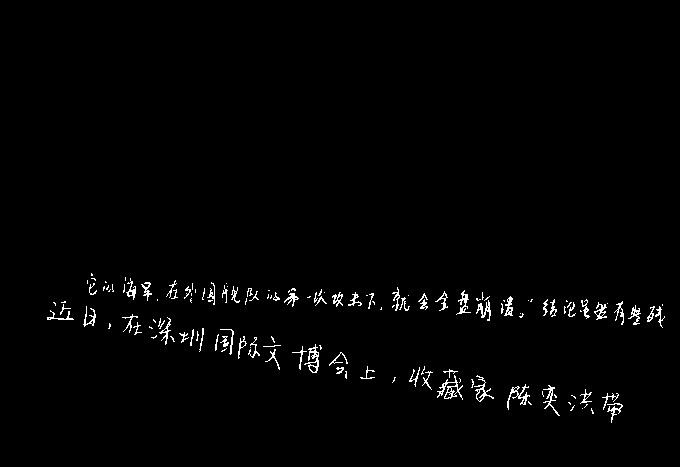 它的海军,在外国舰队的第一次攻击下,就会全盘崩溃。”结论虽然有些残
近日,在深圳国际文博会上,收藏家陈奕洪带